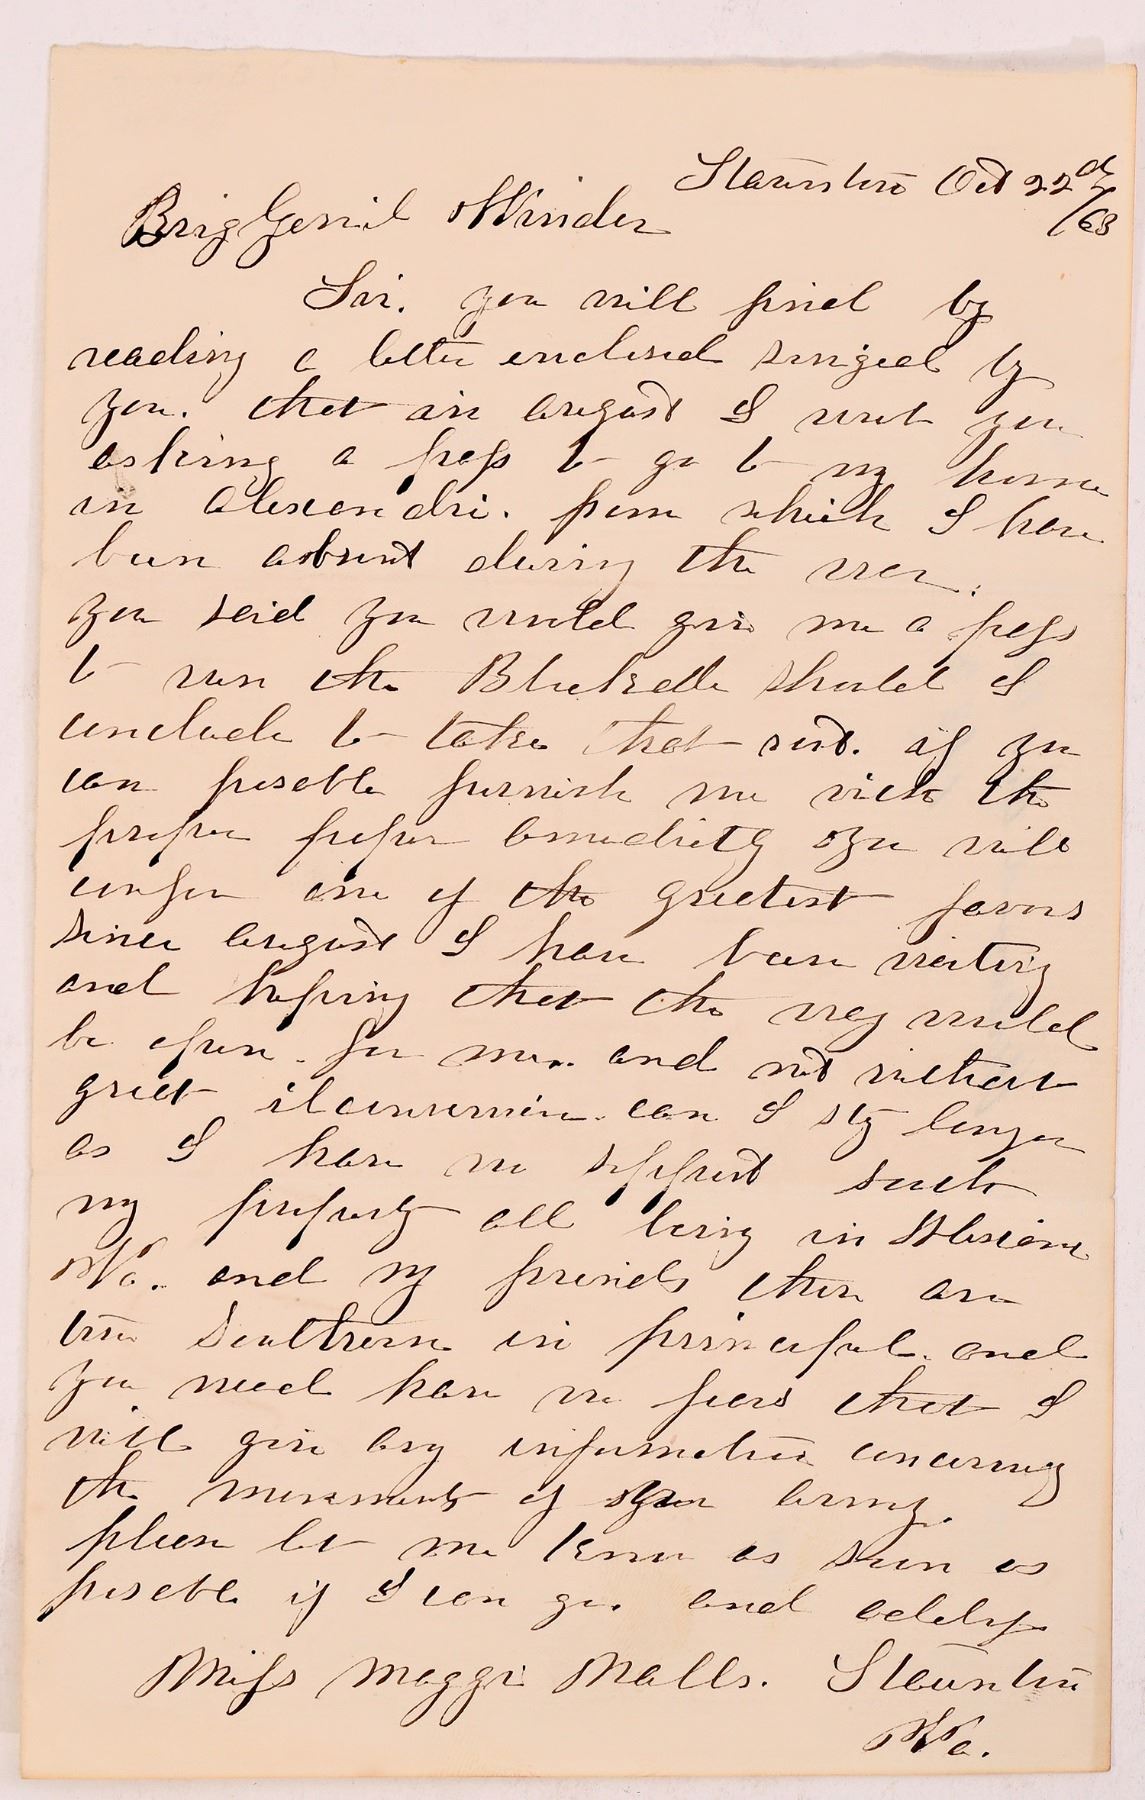 Staunton Oct 22nd
/63
Brig Genril Winder
Sir. you will find by
reading a letter enclosed singed by
you. that in August I wrot you
asking a pass to go to my home
in Alexandri. from which I have
been absent during the war.
you said you would give me a pass
to run the Blockade should I
conclude to take that rout. if you
can poseble furnish me with the
proper paper emediatly you will
confer one of the greatest favors
since August I have been waiting
and hopeing that the way would
be open. for me. and not without
great ilconvenien. can I stay longer
as I have no support
my property all being in Alexan
Va. and my friends there are
true Southern in principal. and
you need have no fears that I
will give any information concerning
the movements of our army.
please let me know as soon as
poseble if I can go. and address
Miss Maggie Walls. Staunton
Va.